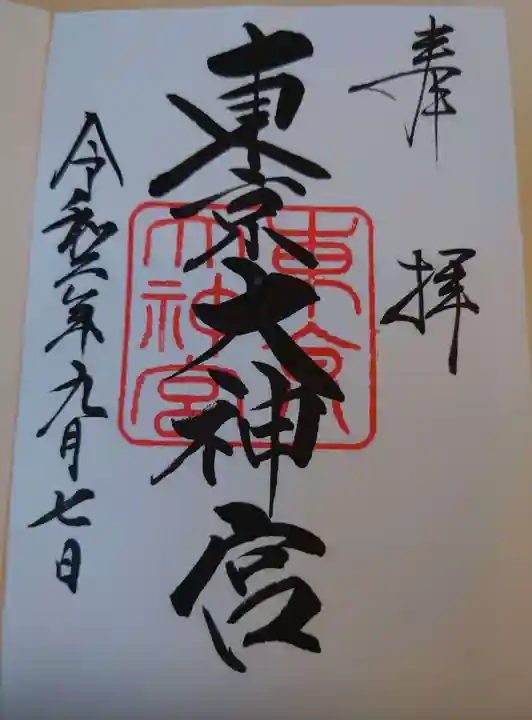 奉拝
東京大神宮
東京
大神宮
令和六年九月七日